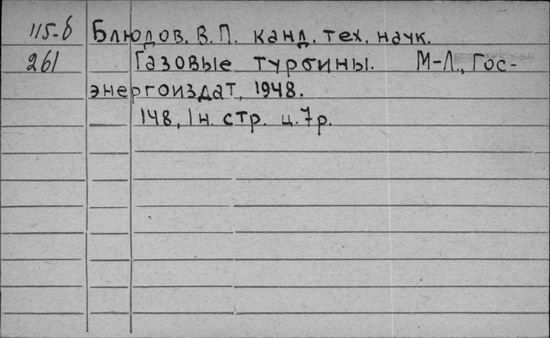 115-б Блюдов. В. П. канд. тех. начк.
261 Газовые турбины. М-Л., Гос-
энергоиздат, 1948.
148, 1 н. стр. ц. 7 р.